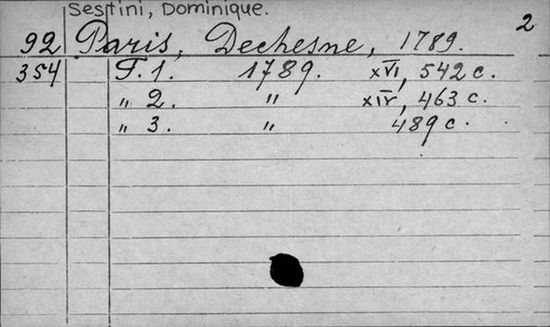 Sestini, Dominique.
2
92 Paris, Dechesne, 1789.
354 T. 1. 1789. XVI, 542 c.
„ 2. „ XIV, 463 c.
„ 3. „ 489 c.